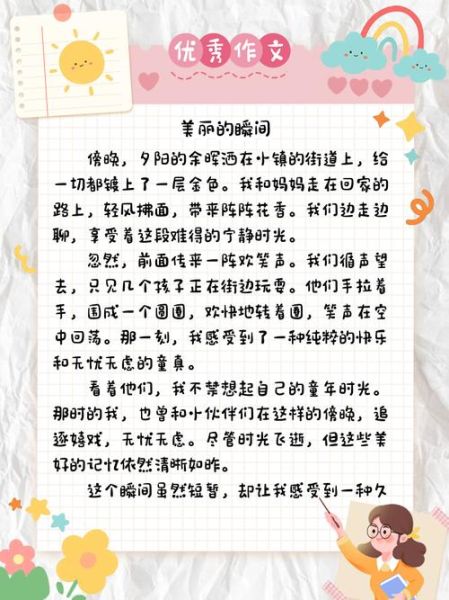 优秀作文
美丽的瞬间
傍晚，夕阳的余晖洒在小镇的街道上，给
一切都镀上了一层金色。我和妈妈走在回家的
路上，轻风拂面，带来阵阵花香。我们边走边
聊，享受着这段难得的宁静时光。
忽然，前面传来一阵欢笑声。我们循声望
去，只见几个孩子正在街边玩耍。他们手拉着
手，围成一个圆圈，欢快地转着圈，笑声在空
中回荡。那一刻，我感受到了一种纯粹的快乐
和无忧无虑的童真。
看着他们，我不禁想起自己的童年时光。
那时的我，也曾和小伙伴们在这样的傍晚，追
逐嬉戏，无忧无虑。尽管时光飞逝，但这些美
好的记忆依然清晰如昨。
这个瞬间虽然短暂，却让我感受到一种久